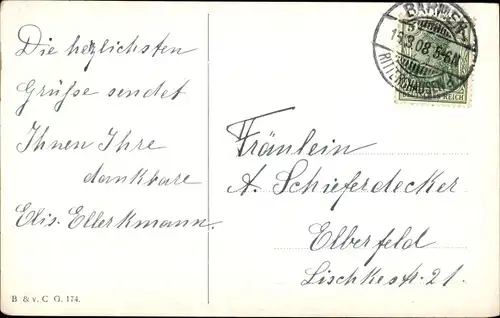 Die herzlichsten
Grüße sendet
Ihnen Ihre
dankbare
Elis. Ellerkmann.
BARMEN-
RITTERSHAUSEN
REICH
Fräulein
A. Schieferdecker
Elberfeld
Lischkestr. 21.
B & v. C G. 174.